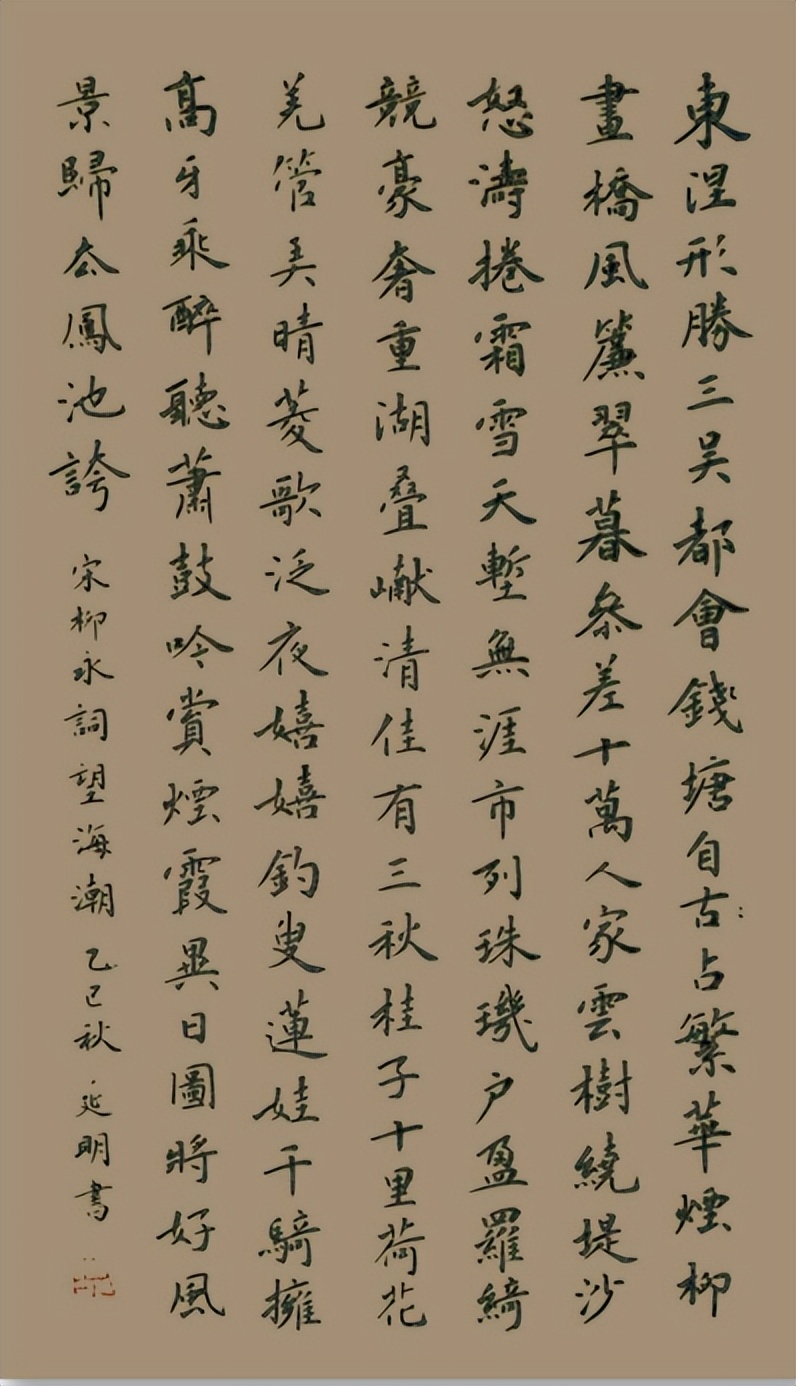 東涅形勝三吴都會錢塘自古占繁華煙柳
畫橋風簾翠暮叅差十萬人家雲樹繞堤沙
怒濤捲霜雪天塹無涯市列珠璣户盈羅綺
競豪奢重湖叠巘清佳有三秋桂子十里荷花
羌管弄晴菱歌泛夜嬉嬉釣叟蓮娃千騎擁
高牙乘醉聽蕭鼓吟賞煙霞異日圖將好風
景歸去鳳池誇
宋柳永詞望海潮乙巳秋延明書